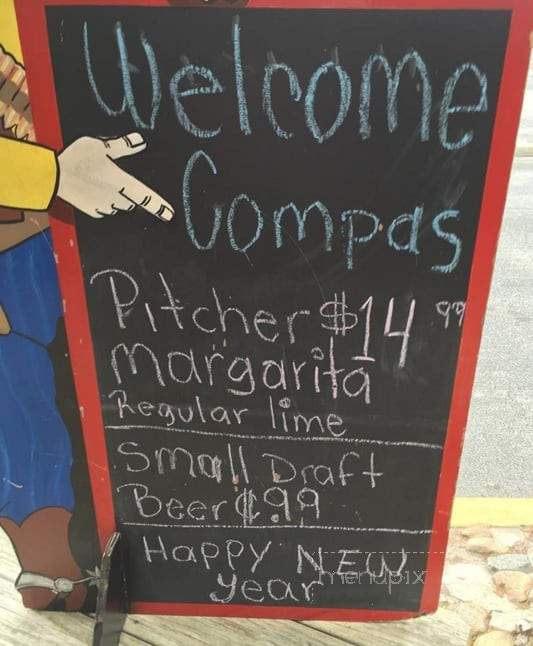 Welcome
Compas
Pitcher $14 99
margarita
Regular lime
Small Draft
Beer ¢99
Happy NEW
year
menupix